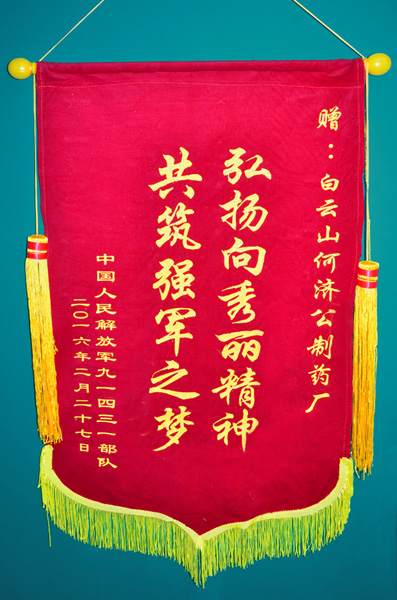 赠：白云山何济公制药厂
弘扬向秀丽精神
共筑强军之梦
中国人民解放军九一四三一部队
二〇一六年二月二十七日